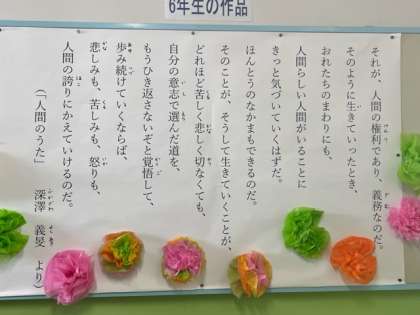 6年生の作品
それが、人間の権利であり、義務なのだ。
そのように生きていったとき、
おれたちのまわりにも、
人間らしい人間がいることに
きっと気づいていくはずだ。
ほんとうのなかまもできるのだ。
そのことが、そうして生きていくことが、
どれほど苦しく悲しく切なくても、
自分の意志で選んだ道を、
もうひき返さないぞと覚悟して、
歩み続けていくならば、
悲しみも、苦しみも、怒りも、
人間の誇りにかえていけるのだ。
（「人間のうた」　深澤　義旻　より）